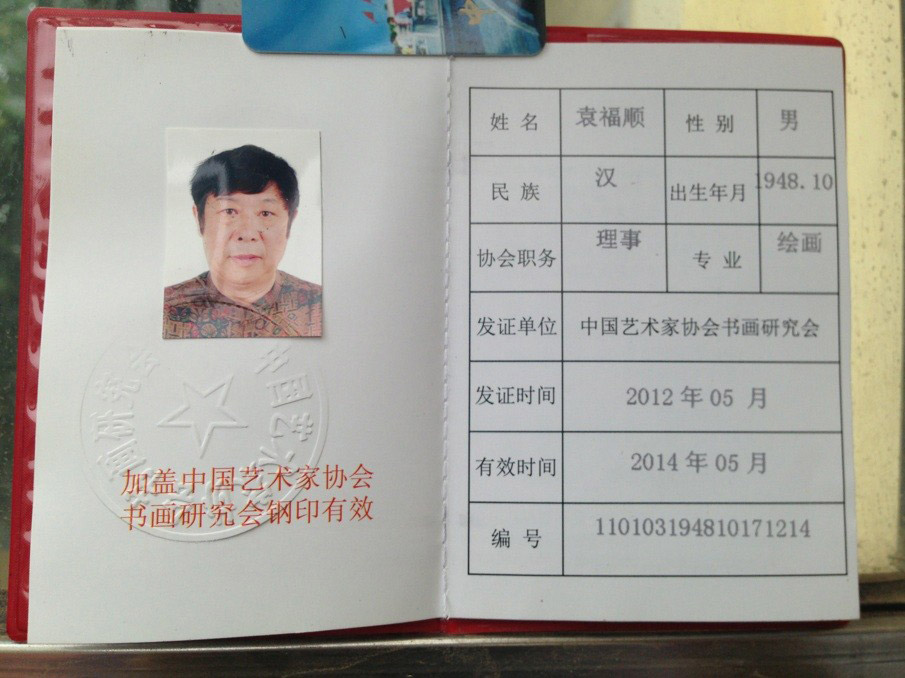 加盖中国艺术家协会
书画研究会钢印有效
姓 名 袁福顺 性 别 男
民 族 汉 出生年月 1948.10
协会职务 理事 专 业 绘画
发证单位 中国艺术家协会书画研究会
发证时间 2012 年 05 月
有效时间 2014 年 05 月
编 号 110103194810171214